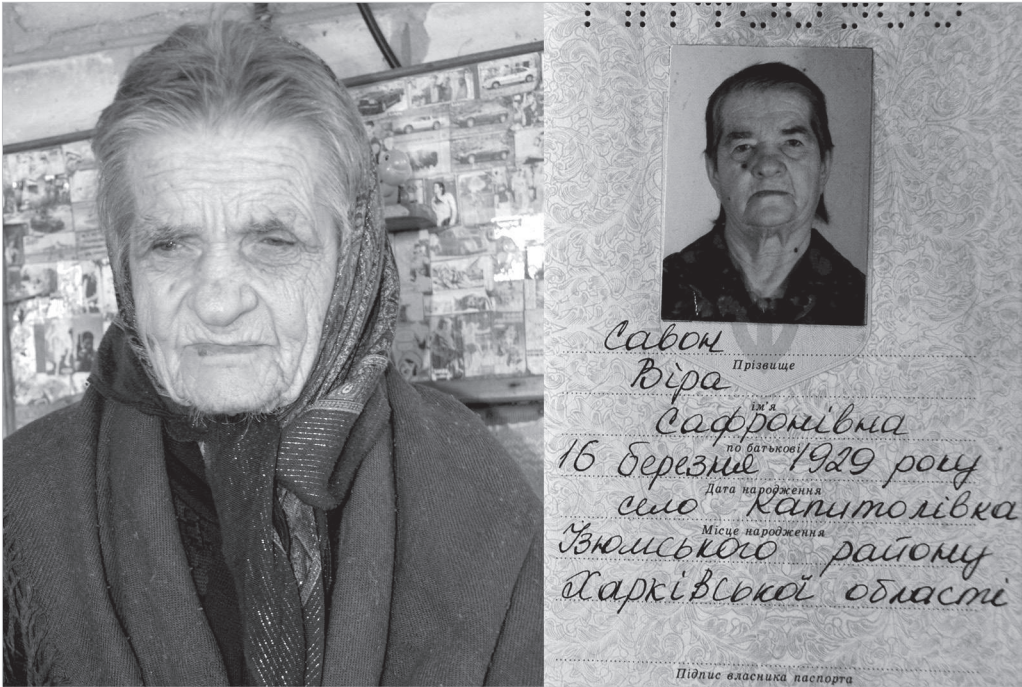 Савон
Прізвище
Віра
ім'я
Сафронівна
по батькові
16 березня 1929 року
Дата народження
село Капитолівка
Місце народження
Ізюмського району
Харківської області
Підпис власника паспорта